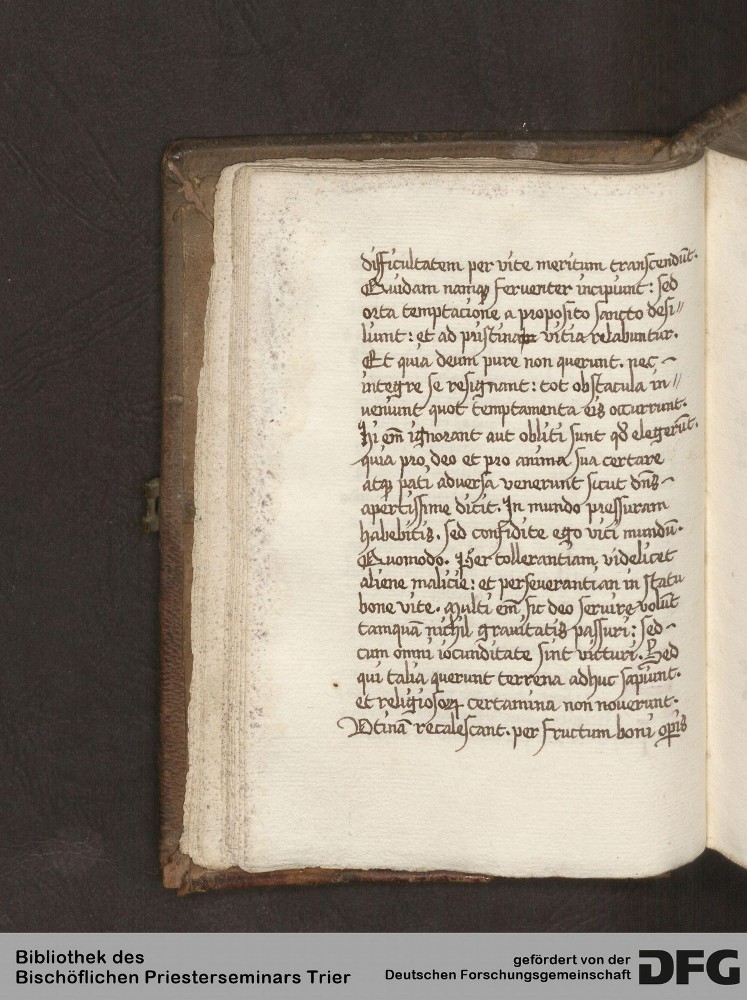 difficultatem per vite meritum transcendūt.
Quidam namqꝫ ferventer incipiunt: sed
orta temptacione a proposito sancto desi〃
liunt: et ad pristina vitia relabuntur.
Et quia deum pure non querunt. nec ~
integre se resignant: tot obstacula in〃
veniunt quot temptamenta eis occurrunt.
Hi em̄ ignorant aut obliti sunt qd̄ elegerūt.
quia pro deo et pro anima sua certare
atqꝫ pati adversa venerunt sicut dn̄s ~
apertissime dicit. In mundo pressuram
habebitis. sed confidite ego vici mundū.
Quomodo. Per tollerantiam videlicet
aliene malicie: et perseverantian in statu
bone vite. Multi em̄ sic deo servire volūt
tamquā nichil gravitatis passuri: sed ~
cum omni iocunditate sint victuri. Sed
qui talia querunt terrena adhuc sapiunt.
et religiosoꝝ certamina non noverunt.
Utinā recalescant. per fructum boni oꝑis
Bibliothek des
Bischöflichen Priesterseminars Trier
gefördert von der
Deutschen Forschungsgemeinschaft
DFG